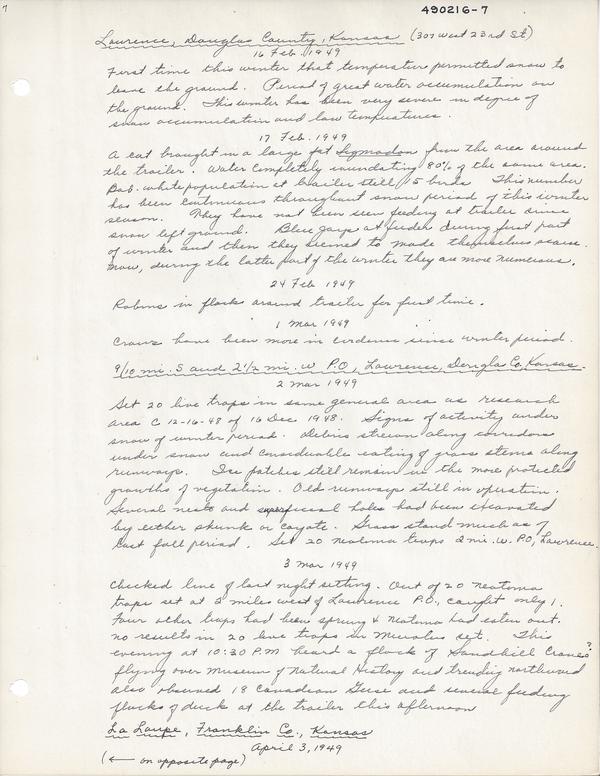 7
490216-7
Lawrence, Douglas County, Kansas (307 West 23rd St)
16 Feb. 1949
First time this winter that temperature permitted snow to
leave the ground. Period of great water accumulation on
the ground. This winter has been very severe in degree of
snow accumulation and low temperatures.
17 Feb. 1949
A cat brought in a large fat Sigmodon from the area around
the trailer. Water completely inundating 80% of the same area.
Bob-white population at trailer still 15 birds This number
has been continuous throughout snow period of this winter
season. They have not been seen feeding at trailer since
snow left ground. Blue jays at feeder during first part
of winter and then they seemed to made themselves scarce.
Now, during the latter part of the winter they are more numerous.
24 Feb 1949
Robins in flock around trailer for first time.
1 Mar 1949
Crows have been more in evidence since winter period.
9/10 mi. S and 2 1/2 mi. W P.O, Lawrence, Douglas Co. Kansas.
2 Mar 1949
Set 20 live traps in same general area as research
area C 12-16-48 of 16 Dec 1948. Signs of activity under
snow of winter period. Debris strewn along corridors
under snow and considerable eating of grass stems along
runways. Ice patches still remain in the more protected
growths of vegetation. Old runways still in operation.
Several nests and superficial holes had been excavated
by either skunk or coyote. Grass stand much as of
last fall period. Set 20 neotoma traps 2 mi. W. PO, Lawrence.
3 Mar 1949
Checked line of last night setting. Out of 20 Neotoma
traps set at 2 miles west of Lawrence P.O., caught only 1.
Four other traps had been sprung & Neotoma had eaten out.
No results in 20 live traps in Microtus set. This
evening at 10:30 P.M heard a flock of Sandhill Cranes?
flying over Museum of Natural History and trending northward
also observed 18 Canadian Geese and several feeding
flocks of duck at the trailer this afternoon
La Loupe, Franklin Co., Kansas
April 3, 1949
(← on opposite page)